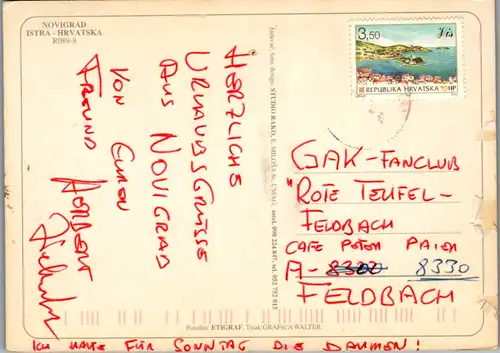 NOVIGRAD
ISTRA - HRVATSKA
R089-8
HERZLICHE
URLAUBSGRÜSSE
AUS NOVIGRAD
VON EUREM
FREUND HERBERT
Izdavač, foto, design: STUDIO RAKO, E. MILOŠA 8c, UMAG,
3,50
Vis
REPUBLIKA HRVATSKA HP
GAK-FANCLUB
"ROTE TEUFEL-
FELDBACH
CAFE PETER
A- 8330
FELDBACH
Fotolito: ETIGRAF, Tisak: GRAFICA WALTER
ICH HALTE FÜR SONNTAG DIE DAUMEN!